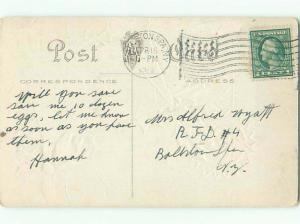 Post Card
BALLSTON SPA, N.Y.
APR 18
PM
CORRESPONDENCE
ADDRESS
Will you save
me 10 dozen
eggs, let me know
as soon as you have
them.
Hannah
Mrs Alfred Wyatt
R.F.D #4
Ballston Spa
N.Y.